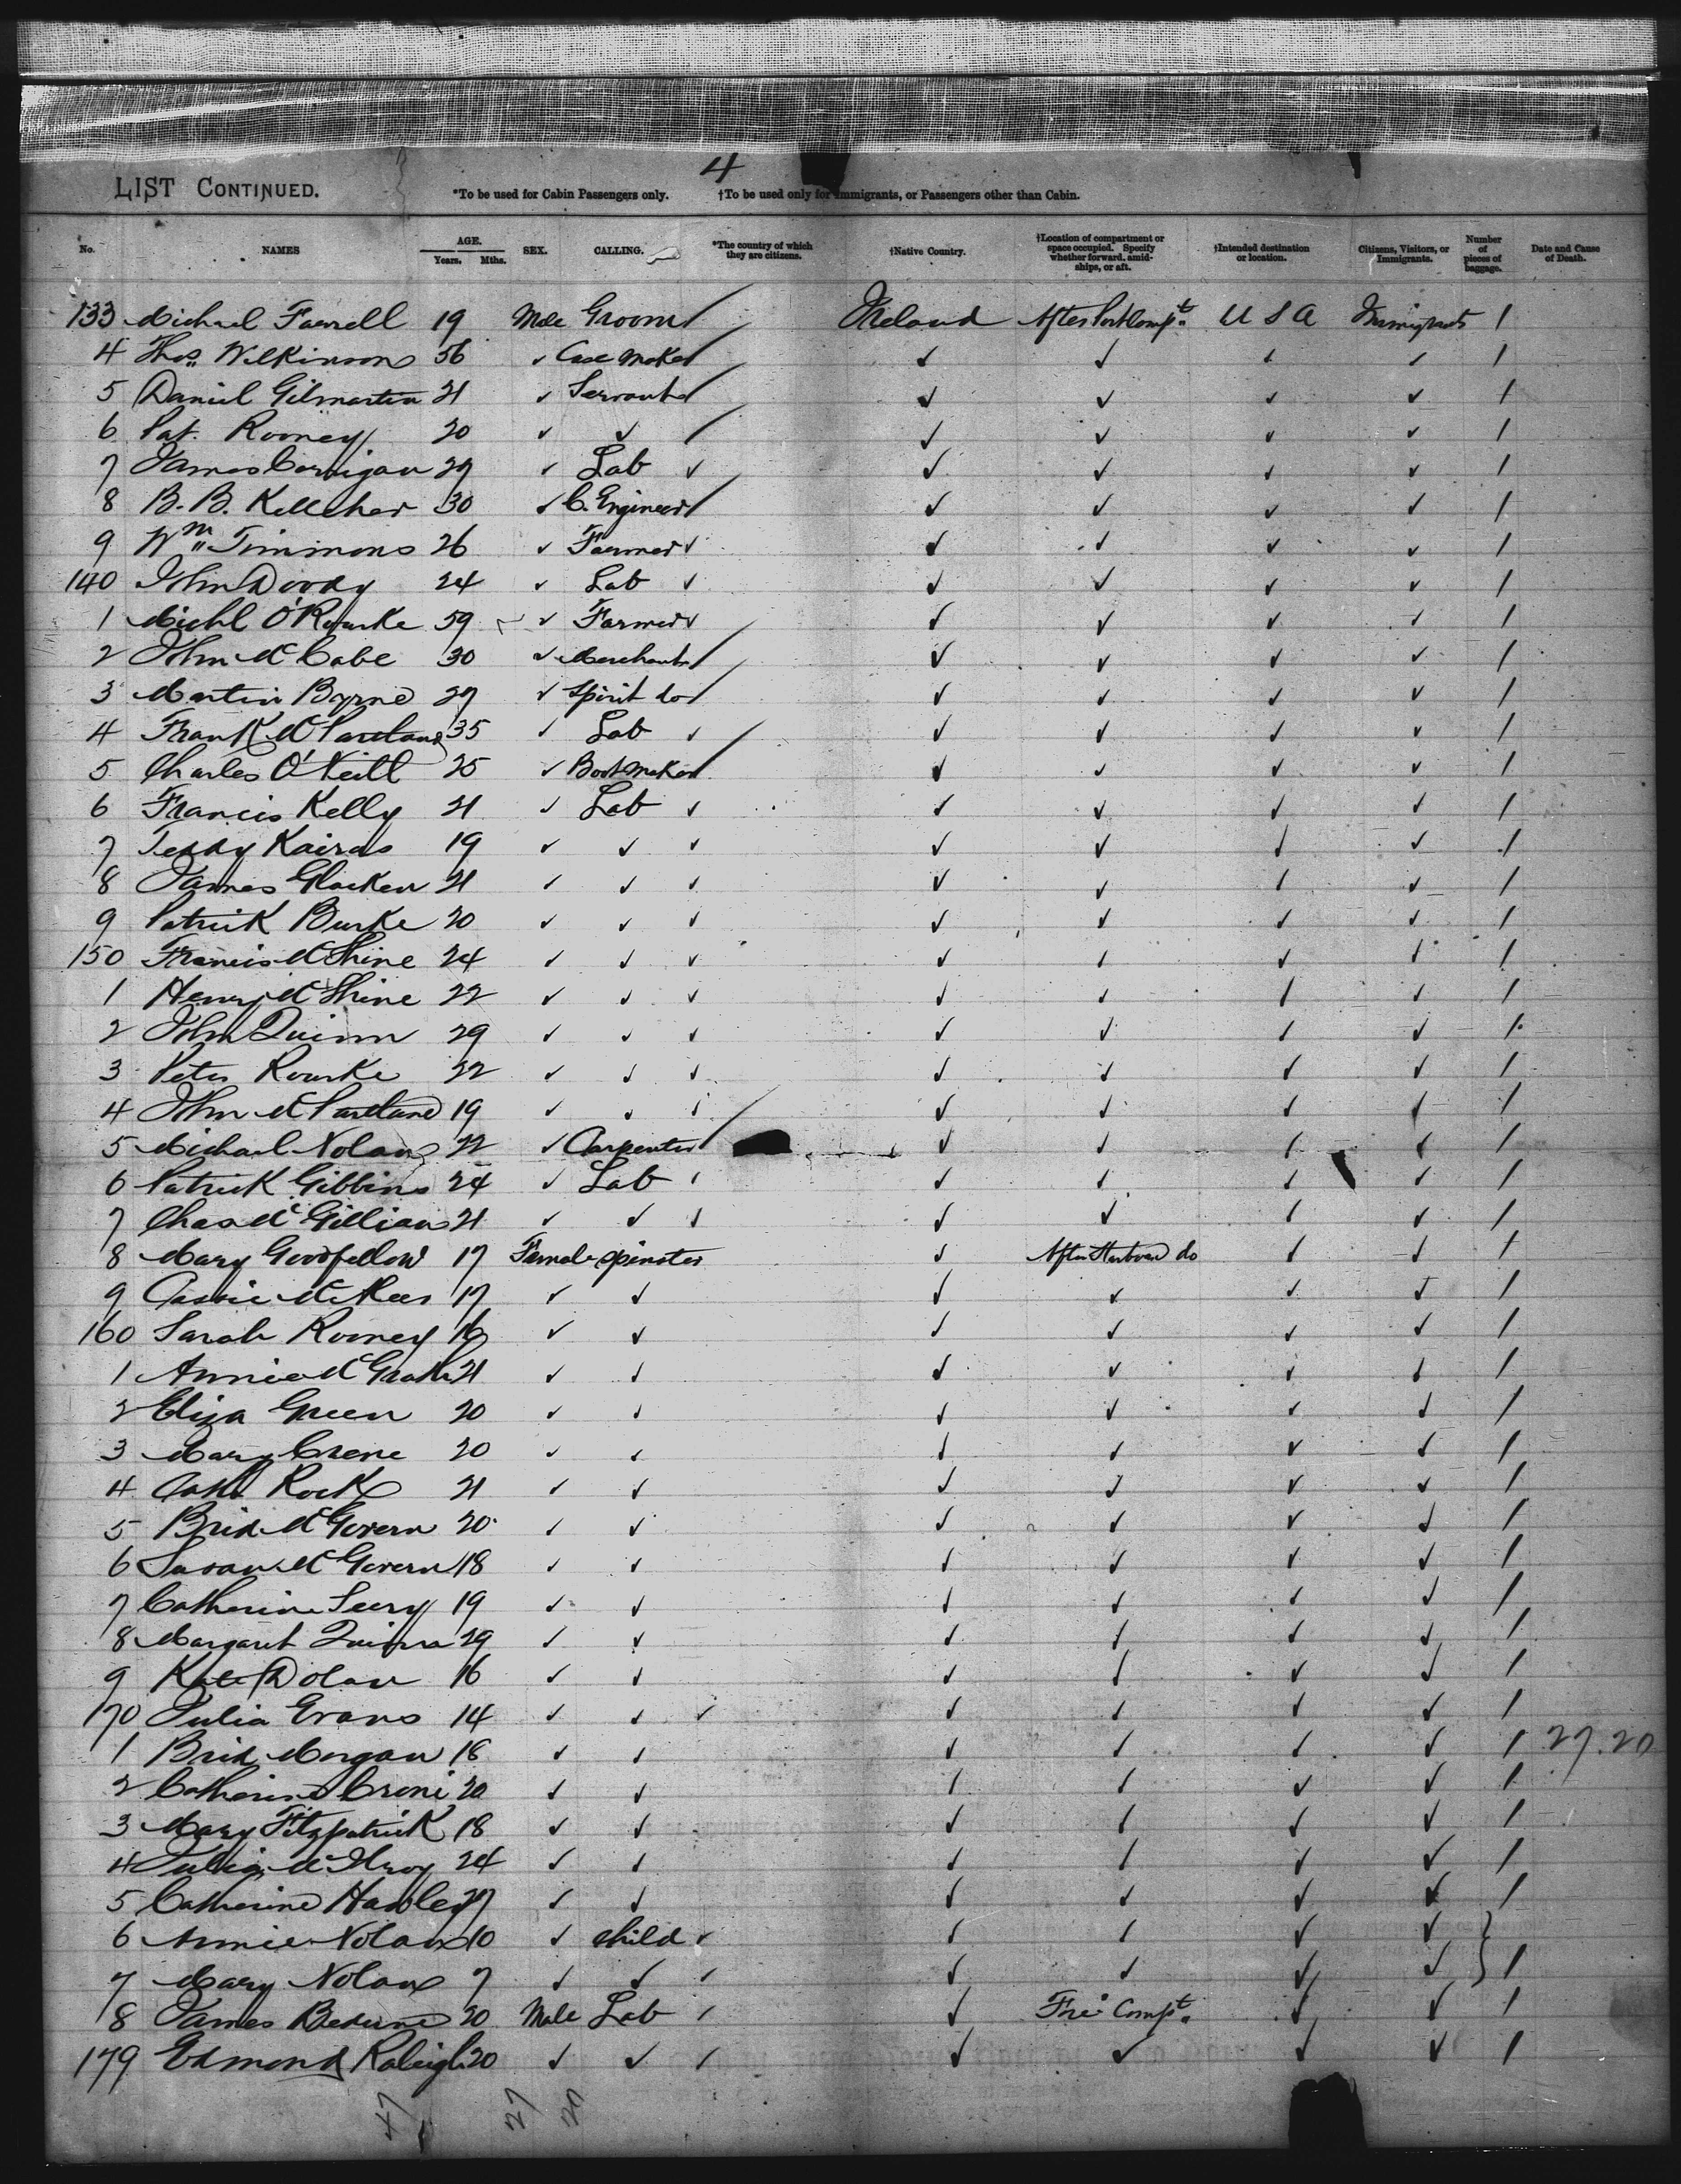 4
LIST CONTINUED. *To be used for Cabin Passengers only. †To be used only for Immigrants, or Passengers other than Cabin.
No. NAMES AGE. Years. Mths. SEX. CALLING. *The country of which they are citizens. †Native Country. †Location of compartment or space occupied. Specify whether forward, amidships, or aft. †Intended destination or location. Citizens, Visitors, or Immigrants. Number of pieces of baggage. Date and Cause of Death.
133 Michael Farrell 19 Male Groom Ireland After Port Compt. U S A Immigrants 1
4 Thos. Wilkinson 56 ✓ Case Maker ✓ ✓ ✓ ✓ 1
5 Daniel Gilmartin 21 ✓ Servant ✓ ✓ ✓ ✓ 1
6 Pat. Rooney 20 ✓ ✓ ✓ ✓ ✓ ✓ 1
7 James Corrigan 27 ✓ Lab ✓ ✓ ✓ ✓ ✓ 1
8 B. B. Kelleher 30 ✓ C. Engineer ✓ ✓ ✓ ✓ 1
9 Wm Timmons 26 ✓ Farmer ✓ ✓ ✓ ✓ ✓ 1
140 John Doody 24 ✓ Lab ✓ ✓ ✓ ✓ ✓ 1
1 Michl O'Rourke 59 ✓ Farmer ✓ ✓ ✓ ✓ ✓ 1
2 John McCabe 30 ✓ Merchant ✓ ✓ ✓ ✓ 1
3 Martin Byrne 27 ✓ Spirit do ✓ ✓ ✓ ✓ 1
4 Frank McPartland 35 ✓ Lab ✓ ✓ ✓ ✓ ✓ 1
5 Charles O'Neill 25 ✓ Bootmaker ✓ ✓ ✓ ✓ 1
6 Francis Kelly 21 ✓ Lab ✓ ✓ ✓ ✓ ✓ 1
7 Teddy Kairns 19 ✓ ✓ ✓ ✓ ✓ ✓ ✓ 1
8 James Glacken 21 ✓ ✓ ✓ ✓ ✓ ✓ ✓ 1
9 Patrick Burke 20 ✓ ✓ ✓ ✓ ✓ ✓ ✓ 1
150 Francis McShine 24 ✓ ✓ ✓ ✓ ✓ ✓ ✓ 1
1 Henry McShine 22 ✓ ✓ ✓ ✓ ✓ ✓ ✓ 1
2 John Quinn 29 ✓ ✓ ✓ ✓ ✓ ✓ ✓ 1
3 Peter Rourke 22 ✓ ✓ ✓ ✓ ✓ ✓ ✓ 1
4 John McPartland 19 ✓ ✓ ✓ ✓ ✓ ✓ ✓ 1
5 Michael Nolan 22 ✓ Carpenter ✓ ✓ ✓ ✓ 1
6 Patrick Gibbins 24 ✓ Lab ✓ ✓ ✓ ✓ ✓ 1
7 Chas McGillian 21 ✓ ✓ ✓ ✓ ✓ ✓ ✓ 1
8 Mary Goodfellow 17 Female Spinster ✓ After Starboard do ✓ ✓ 1
9 Cassie 17 ✓ ✓ ✓ ✓ ✓ ✓ 1
160 Sarah Rooney 16 ✓ ✓ ✓ ✓ ✓ ✓ 1
1 Annie McGrath 21 ✓ ✓ ✓ ✓ ✓ ✓ 1
2 Eliza Green 20 ✓ ✓ ✓ ✓ ✓ ✓ 1
3 Mary Crene 20 ✓ ✓ ✓ ✓ ✓ ✓ 1
4 Cath Rock 21 ✓ ✓ ✓ ✓ ✓ ✓ 1
5 Brid McGovern 20 ✓ ✓ ✓ ✓ ✓ ✓ 1
6 Susan McGovern 18 ✓ ✓ ✓ ✓ ✓ ✓ 1
7 Catherine Seery 19 ✓ ✓ ✓ ✓ ✓ ✓ 1
8 Margaret Quinn 29 ✓ ✓ ✓ ✓ ✓ ✓ 1
9 Kate Dolan 16 ✓ ✓ ✓ ✓ ✓ ✓ 1
170 Julia Evans 14 ✓ ✓ ✓ ✓ ✓ ✓ ✓ 1
1 Brid Morgan 18 ✓ ✓ ✓ ✓ ✓ ✓ 1 27.20
2 Catherine Croni 20 ✓ ✓ ✓ ✓ ✓ ✓ 1
3 Mary Fitzpatrick 18 ✓ ✓ ✓ ✓ ✓ ✓ 1
4 Julia McIlroy 24 ✓ ✓ ✓ ✓ ✓ ✓ 1
5 Catherine Hawley 27 ✓ ✓ ✓ ✓ ✓ ✓ 1
6 Annie Nolan 10 ✓ Child ✓ ✓ ✓ ✓ ✓
7 Mary Nolan 7 ✓ ✓ ✓ ✓ ✓ ✓ ✓ } 1
8 James 20 Male Lab ✓ ✓ Fre Compt. ✓ ✓ 1
179 Edmond Raleigh 20 ✓ ✓ ✓ ✓ ✓ ✓ ✓ 1
47 27 20